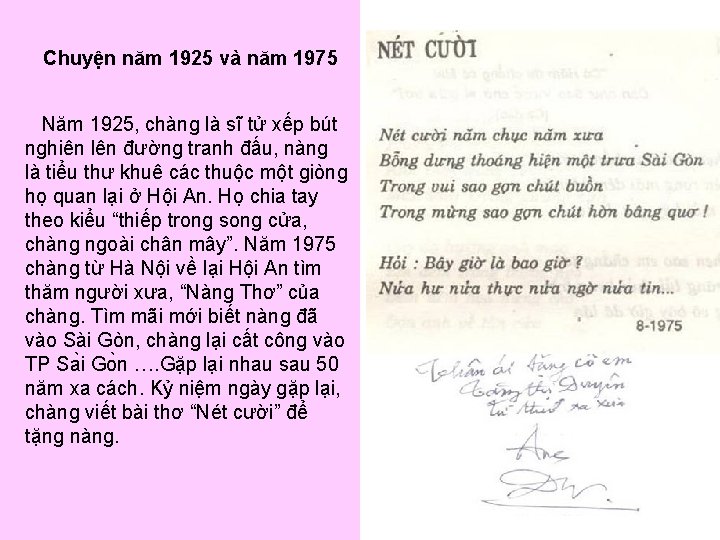 Chuyện năm 1925 và năm 1975
Năm 1925, chàng là sĩ tử xếp bút
nghiên lên đường tranh đấu, nàng
là tiểu thư khuê các thuộc một giòng
họ quan lại ở Hội An. Họ chia tay
theo kiểu “thiếp trong song cửa,
chàng ngoài chân mây”. Năm 1975
chàng từ Hà Nội về lại Hội An tìm
thăm người xưa, “Nàng Thơ” của
chàng. Tìm mãi mới biết nàng đã
vào Sài Gòn, chàng lại cất công vào
TP Sài Gòn ….Gặp lại nhau sau 50
năm xa cách. Kỷ niệm ngày gặp lại,
chàng viết bài thơ “Nét cười” để
tặng nàng.
NÉT CƯỜI
Nét cười năm chục năm xưa
Bỗng dưng thoáng hiện một trưa Sài Gòn
Trong vui sao gợn chút buồn
Trong mừng sao gợn chút hờn bâng quơ !
Hỏi : Bây giờ là bao giờ ?
Nửa hư nửa thực nửa ngờ nửa tin...
8-1975
Thân ái tặng cô em